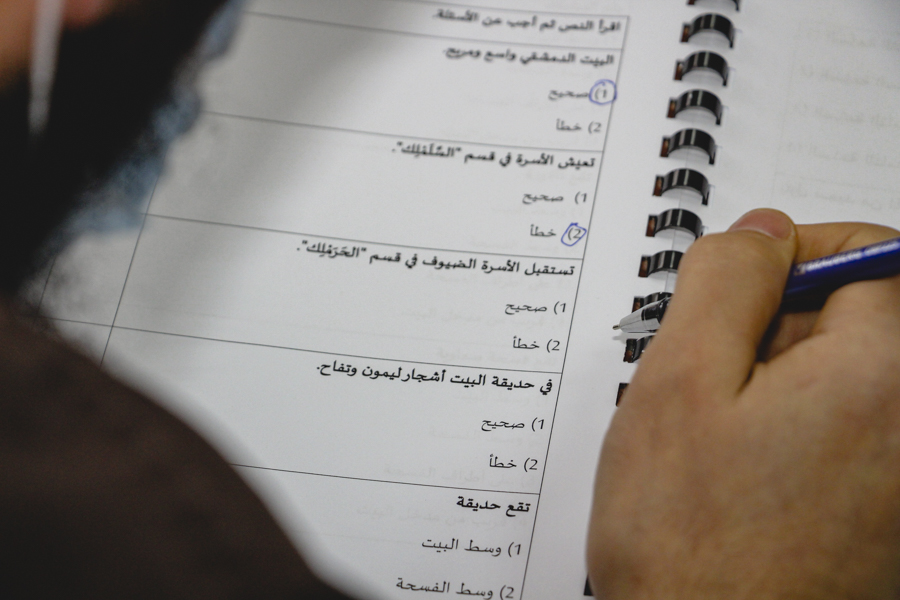 اقرأ النص ثم أجب عن الأسئلة.
البيت الدمشقي واسع ومريح.
1) صحيح
2) خطأ
تعيش الأسرة في قسم "السَّلَمْلِك".
1) صحيح
2) خطأ
تستقبل الأسرة الضيوف في قسم "الحَرَمْلِك".
1) صحيح
2) خطأ
في حديقة البيت أشجار ليمون وتفاح.
1) صحيح
2) خطأ
تقع حديقة
1) وسط البيت
2) وسط الفسحة